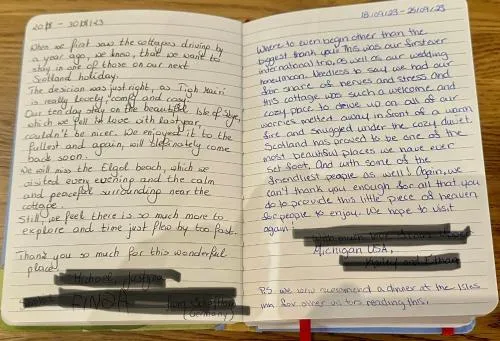 20/8 - 30/8/23
When we first saw the cottages driving by
a year ago, we knew, that we want to
stay in one of those on our next
Scotland holiday.
The decision was just right, as Tigh Mairi
is really lovely, comfy and cosy.
Our ten day stay on the beautiful Isle of Skye,
which we fell in love with last year,
couldn't be nicer. We enjoyed it to the
fullest and again, will definately come
back soon.
We will miss the Elgol beach, which we
visited every evening and the calm
and peaceful surrounding near the
cottage.
Still, we feel there is so much more to
explore and time just flew by too fast.
Thank you so much for this wonderful
place!
(Germany)
18/09/23 - 25/09/23
Where to even begin other than the
biggest thank you! This was our first ever
international trip, as well as our wedding
honeymoon. Needless to say we had our
fair share of nerves and stress and
this cottage was such a welcome and
cozy place to drive up on all of our
worries melted away in front of a warm
fire and snuggled under the cozy duvet.
Scotland has proved to be one of the
most beautiful places we have ever
set foot. And with some of the
friendliest people as well! Again, we
can't thank you enough for all that you
do to provide this little piece of heaven
for people to enjoy. We hope to visit
again!
Michigan USA,
PS we would recommend a dinner at the Isles
inn for other visitors reading this.